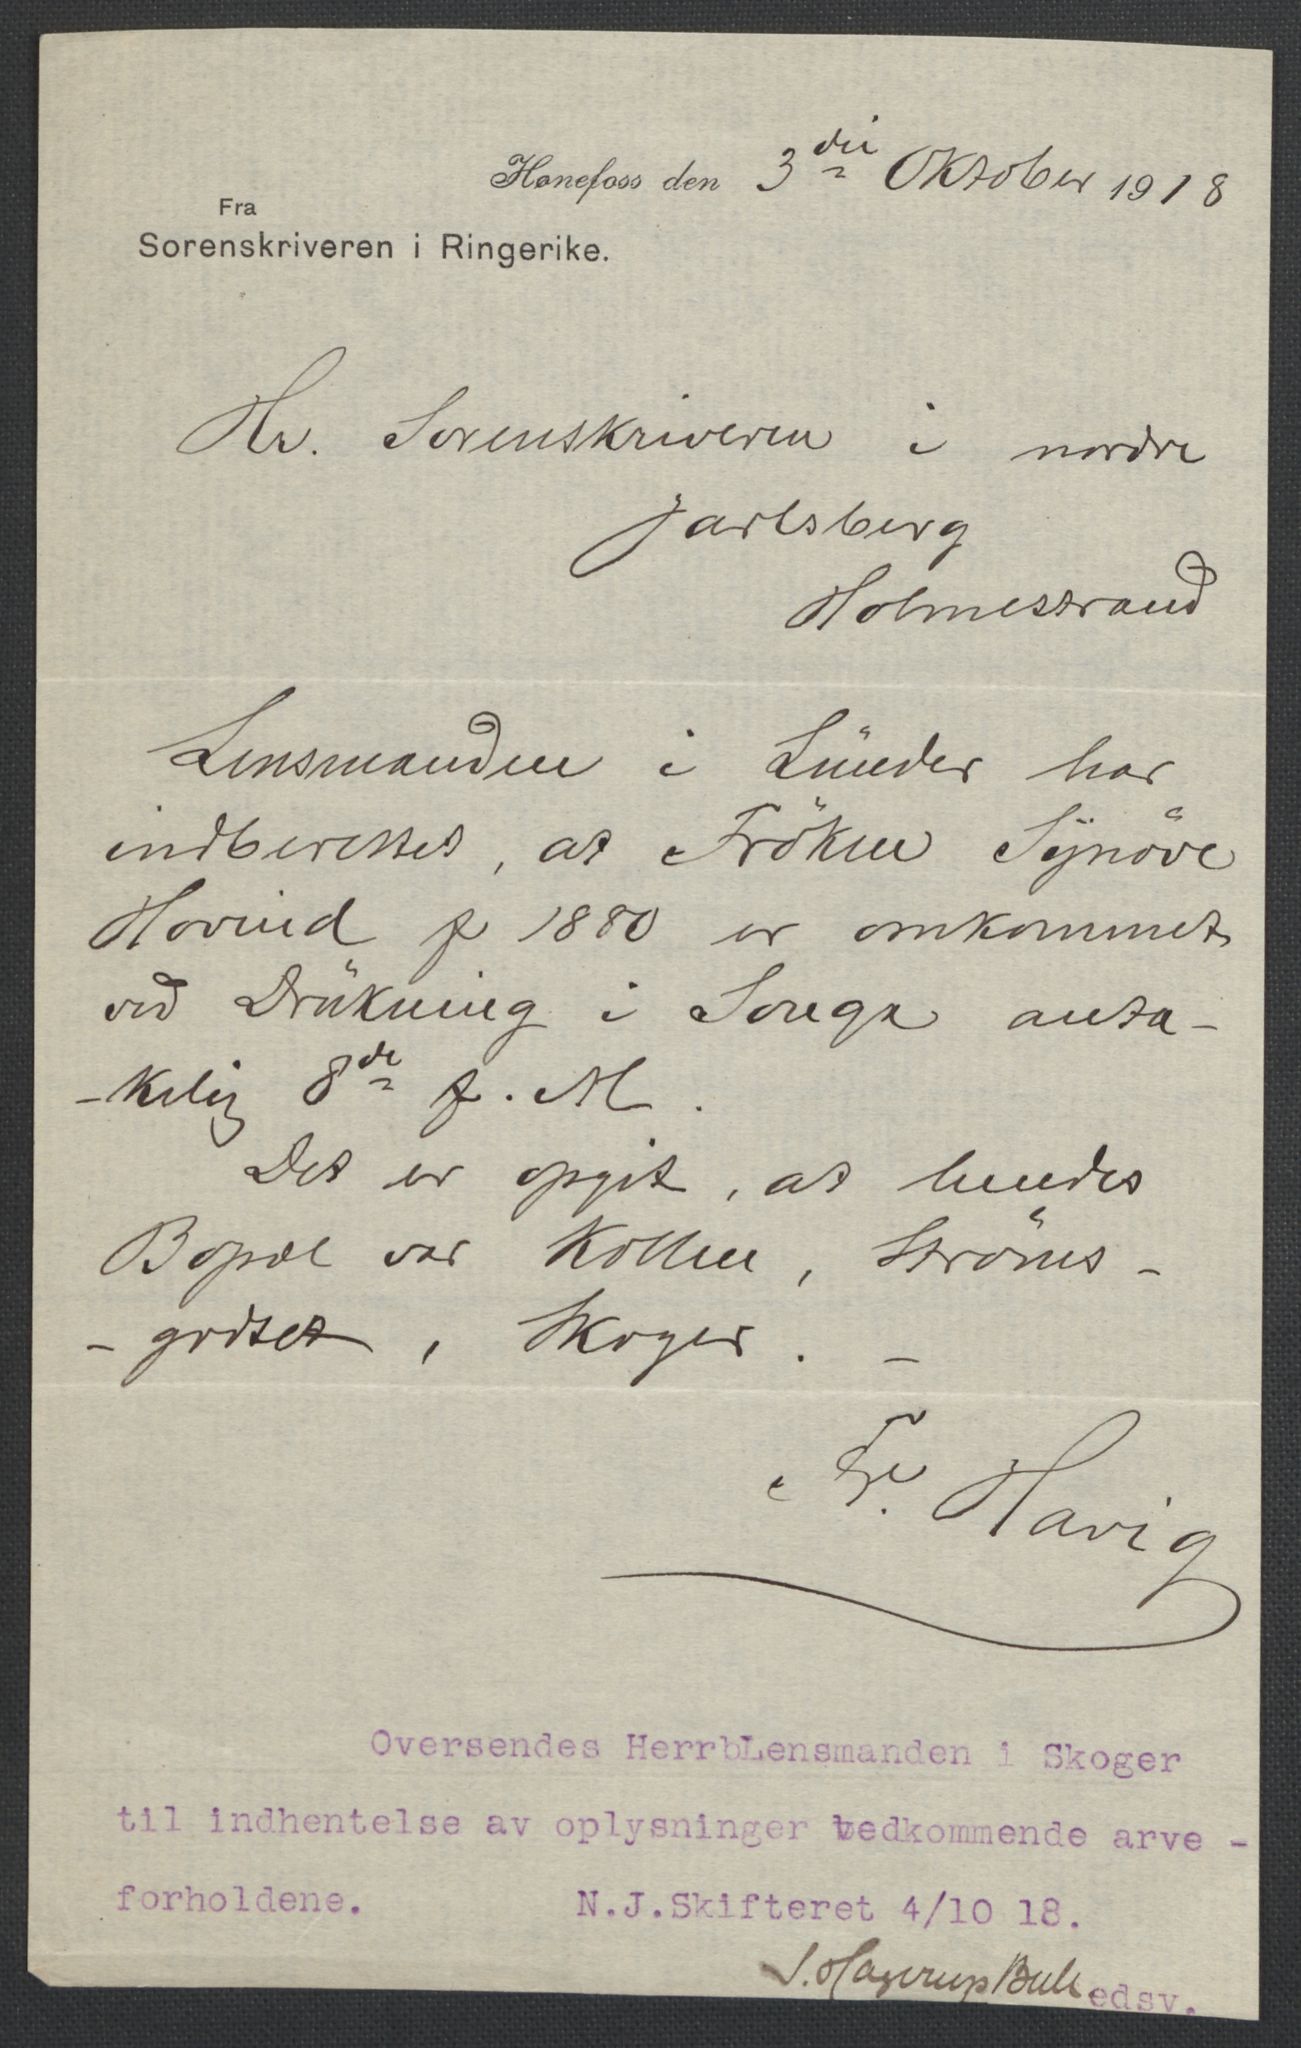 Hønefoss den 3die Oktober 1918
Fra
Sorenskriveren i Ringerike.
Hr. Sorenskriveren i nordre
Jarlsberg
Holmestrand
Lensmanden i Lünder har
indberettet, at Fröken Synöve
Hovind f 1880 er omkommet
ved Drükning i Songa anta-
-kelig 8de f. M.
Det er opgit, at hendes
Bopæl var Kollen, Ströms-
-godset, Skoger. -
Fr. Havig
Oversendes HerrbLensmanden i Skoger
til indhentelse av oplysninger vedkommende arve-
forholdene. N.J.Skifteret 4/10 18.
J. Hagerup Bull edsv.